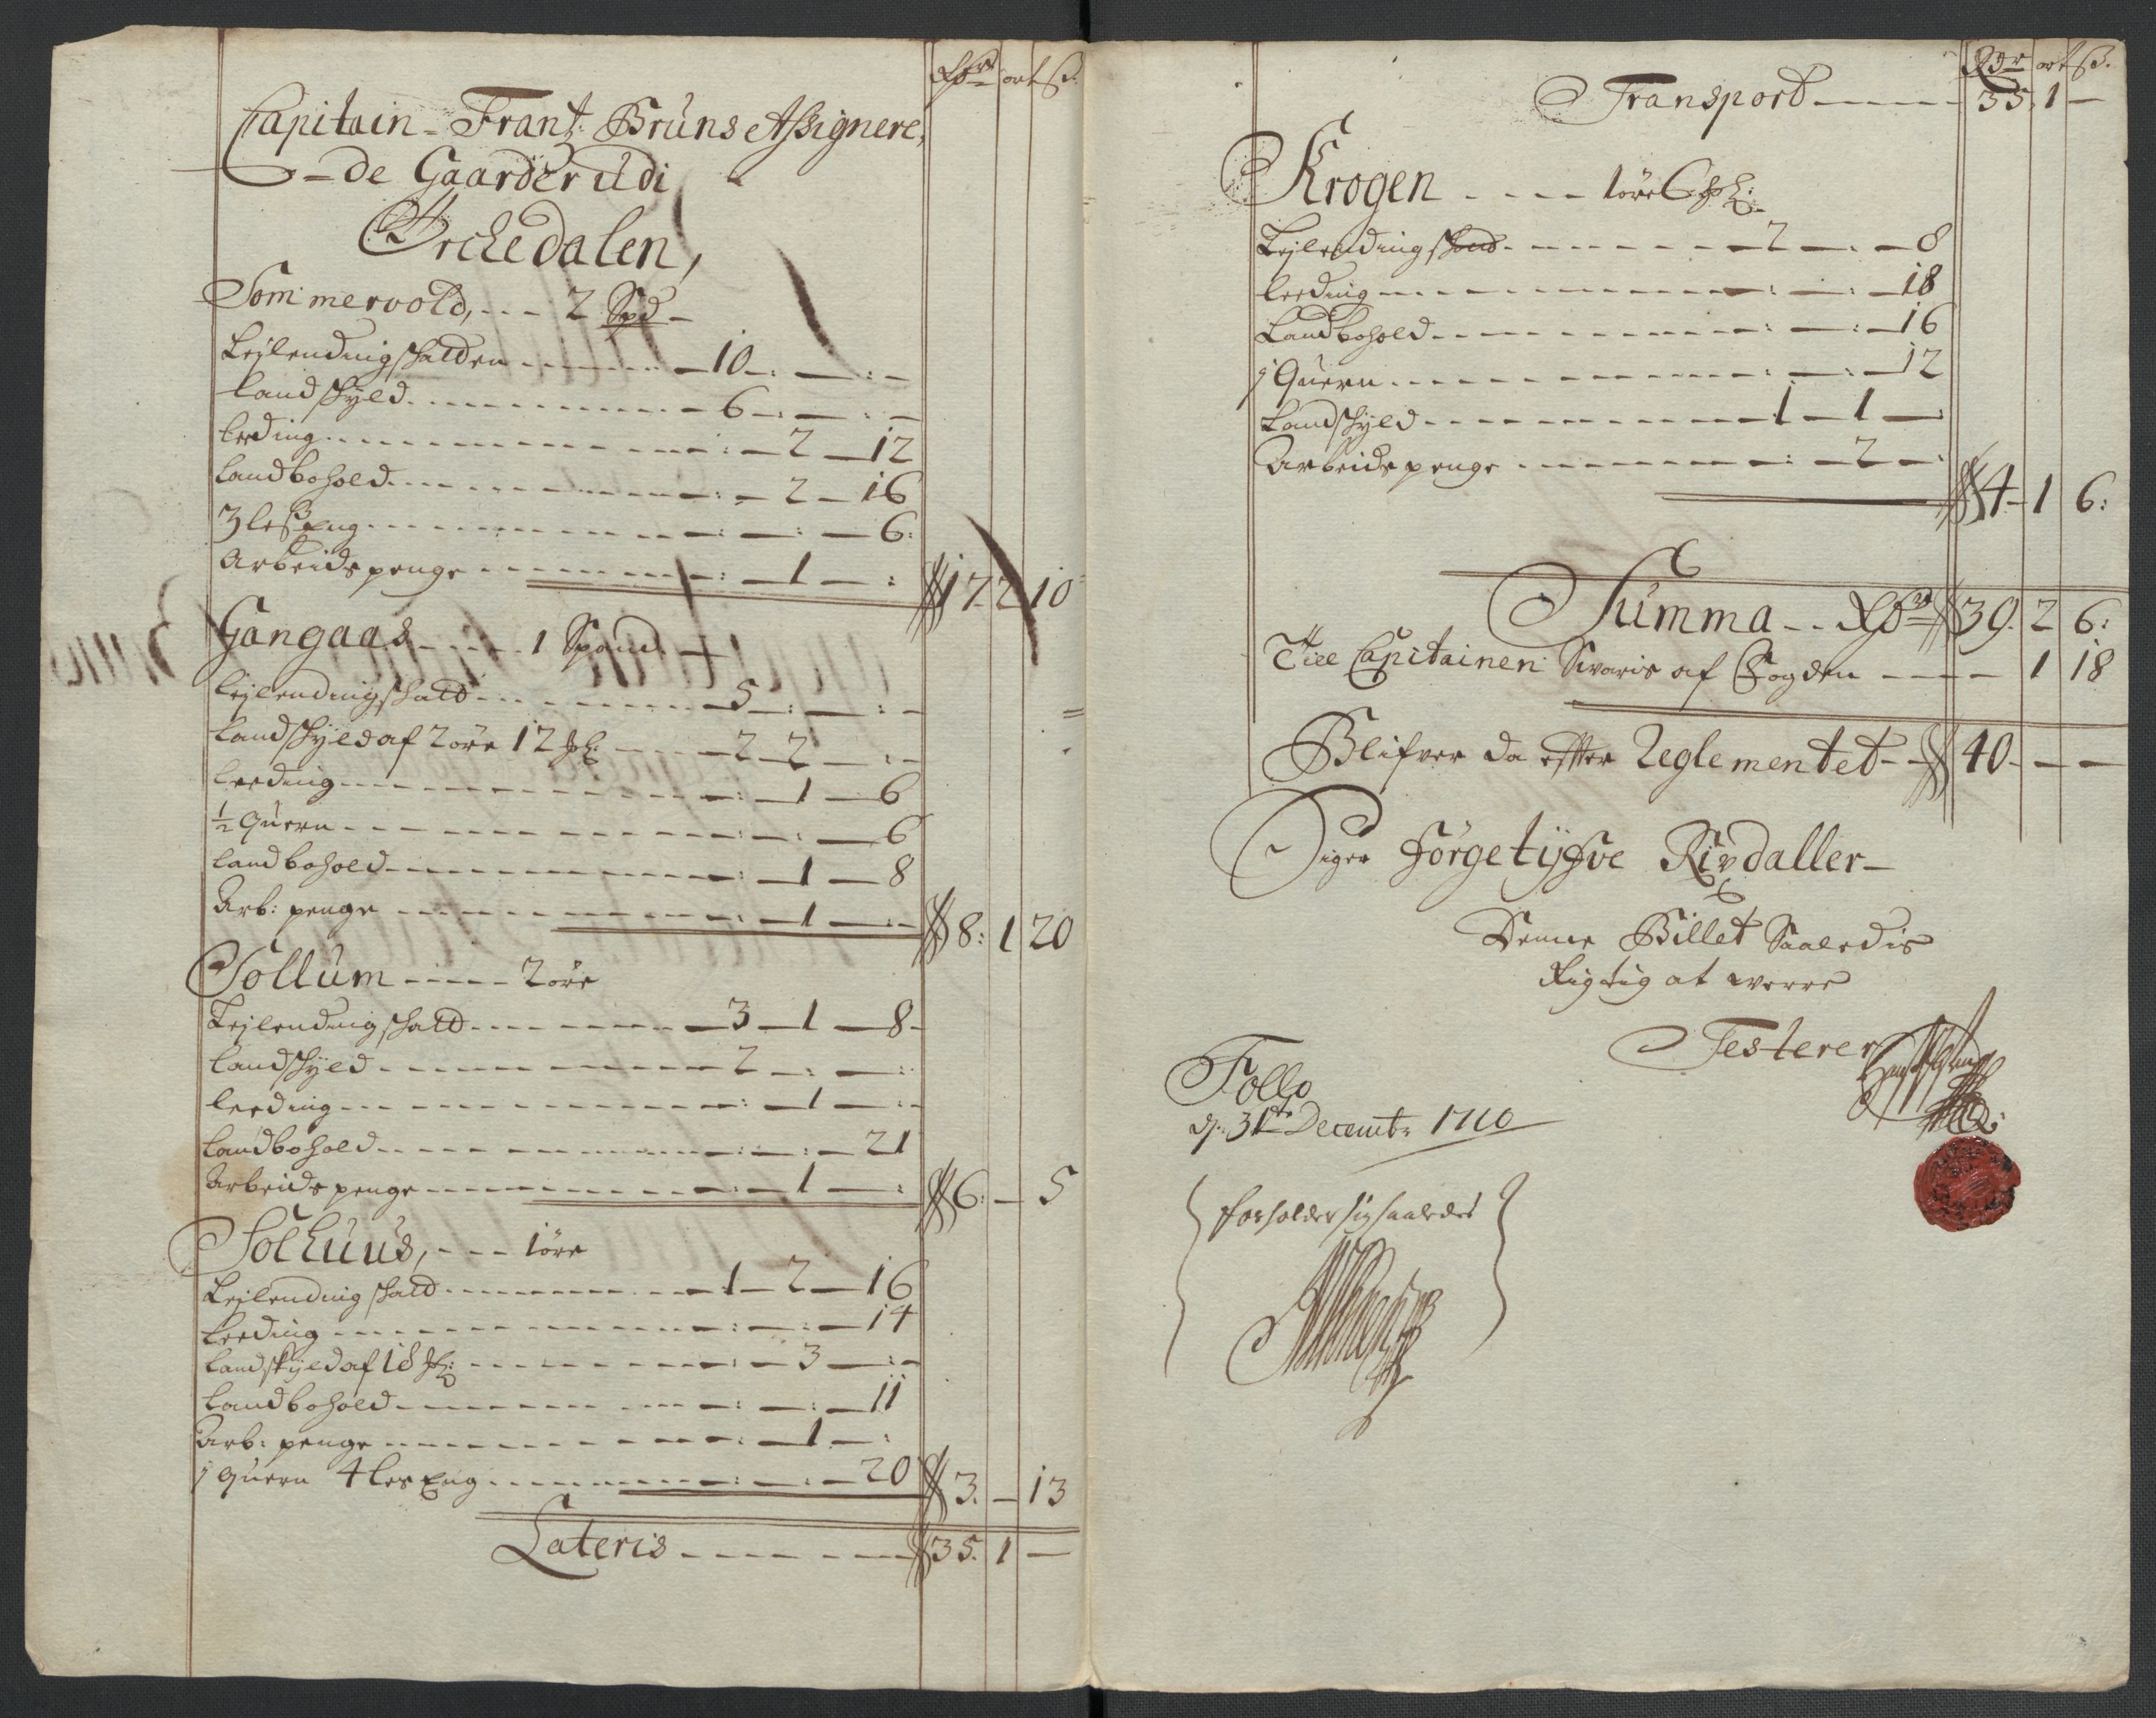 Rdr ort ß.
Capitain Frantz Brüns Assignere,
de Gaarder Udi
Orchedalen,
Sommervold, 2 Spd
Leÿlendingschatden 10
Landschÿld 6
Leeding 2 12
Landbohold 2 16
3 less Eng 6
Arbeidspenge 1
17 2 10
Gangaas 1 Spand
Leÿlendingschatd 5
Landschÿld af 2 øre 12 2 2
Leeding 1 6
½ Quern 6
Landbohold 1 8
Arb: penge 1
8: 1 20
Sollum 2 øre
Leÿlendingschatd 3 1 8
Landschÿld 2
Leeding 1
Landbohold 21
Arbeidspenge 1
6: 5
Solhuus, 1 øre
Leÿlendingschatd 1 2 16
Leeding 14
Landskÿld af 18 3
Landbohold 11
Arb: penge 1
j Quern 4 les Eng 20
3. 13
Lateris 35. 1
Rdr ort ß.
Transport 35. 1
Krogen 1 øre 6
Leÿlendingschatd 2 8
Leeding 18
Landbohold 16
j Quern 12
Landschÿld 1 1
Arbeidspenge 2
4 1 6:
Summa Rdr 39. 2 6:
Till Capitainen Svaris af Fogden 1 18
Blifver da efter Reglementet 40
Siger Förgetÿfve Rixdaller
Denne Billet Saaledis
Rigtig at were
Testerer
Follo
dj: 31te Decembr: 1710
forholder sig saaledes